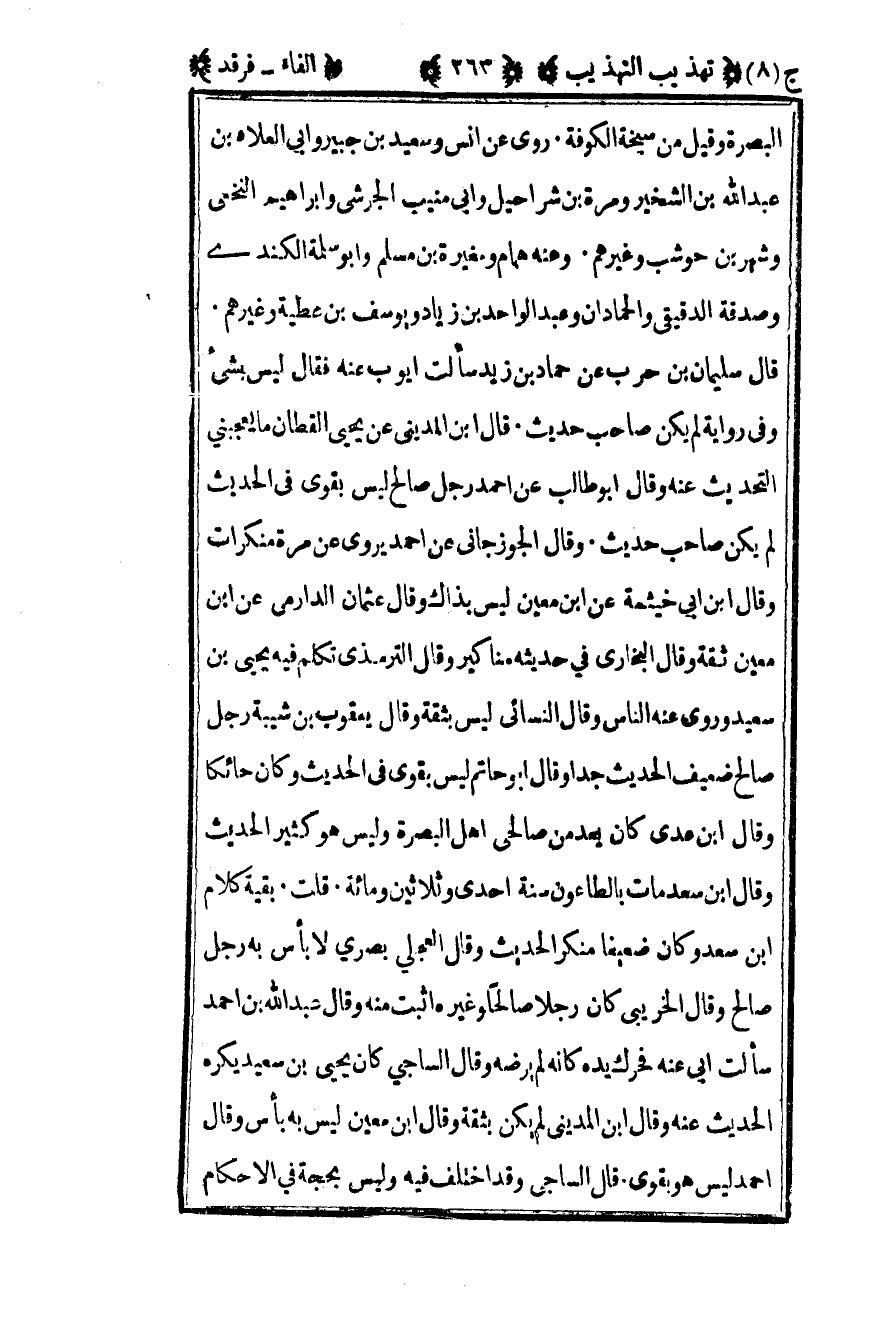 ج (٨) تهذيب التهذيب ٢٦٣ الفاء ـ فرقد
البصرة وقيل من سبخة الكوفة ٠ روى عن انس وسعيد بن جبير وابي العلاء بن
عبدالله بن الشخير ومرة بن شراحيل وابي منيب الجرشى وابراهيم النخعى
وشهر بن حوشب وغيرهم ٠ وعنه همام ومغيرة بن مسلم وابو سلمة الكندے
وصدقة الدقيقى والحمادان وعبد الواحد بن زياد ويوسف بن عطية وغيرهم ٠
قال سليمان بن حرب عن حماد بن زيد سألت ايوب عنه فقال ليس بشئ
وفى رواية لم يكن صاحب حديث ٠ قال ابن المدينى عن يحيى القطان ما يعجبني
التحديث عنه وقال ابو طالب عن احمد رجل صالح ليس بقوى فى الحديث
لم يكن صاحب حديث ٠ وقال الجوزجانى عن احمد يروى عن مرة منكرات
وقال ابن ابي خيثمة عن ابن معين ليس بذاك وقال عثمان الدارمى عن ابن
معين ثقة وقال البخارى في حديثه مناكير وقال الترمذى تكلم فيه يحيى بن
سعيد وروى عنه الناس وقال النسائى ليس بثقة وقال يعقوب بن شيبة رجل
صالح ضعيف الحديث جدا وقال ابو حاتم ليس بقوى فى الحديث وكان حائكا
وقال ابن عدى كان يعد من صالحى اهل البصرة وليس هو كثير الحديث
وقال ابن سعد مات بالطاعون سنة احدى وثلاثين ومائة ٠ قلت ٠ بقية كلام
ابن سعد وكان ضعيفا منكر الحديث وقال العجلي بصري لا بأس به رجل
صالح وقال الخريبى كان رجلا صالحًا وغيره اثبت منه وقال عبدالله بن احمد
سألت ابى عنه فحرك يده كانه لم يرضه وقال الساجي كان يحيى بن سعيد يكره
الحديث عنه وقال ابن المدينى لم يكن بثقة وقال ابن معين ليس به بأس وقال
احمد ليس هو بقوى ٠ قال الساجى وقد اختلف فيه وليس بحجة في الاحكام